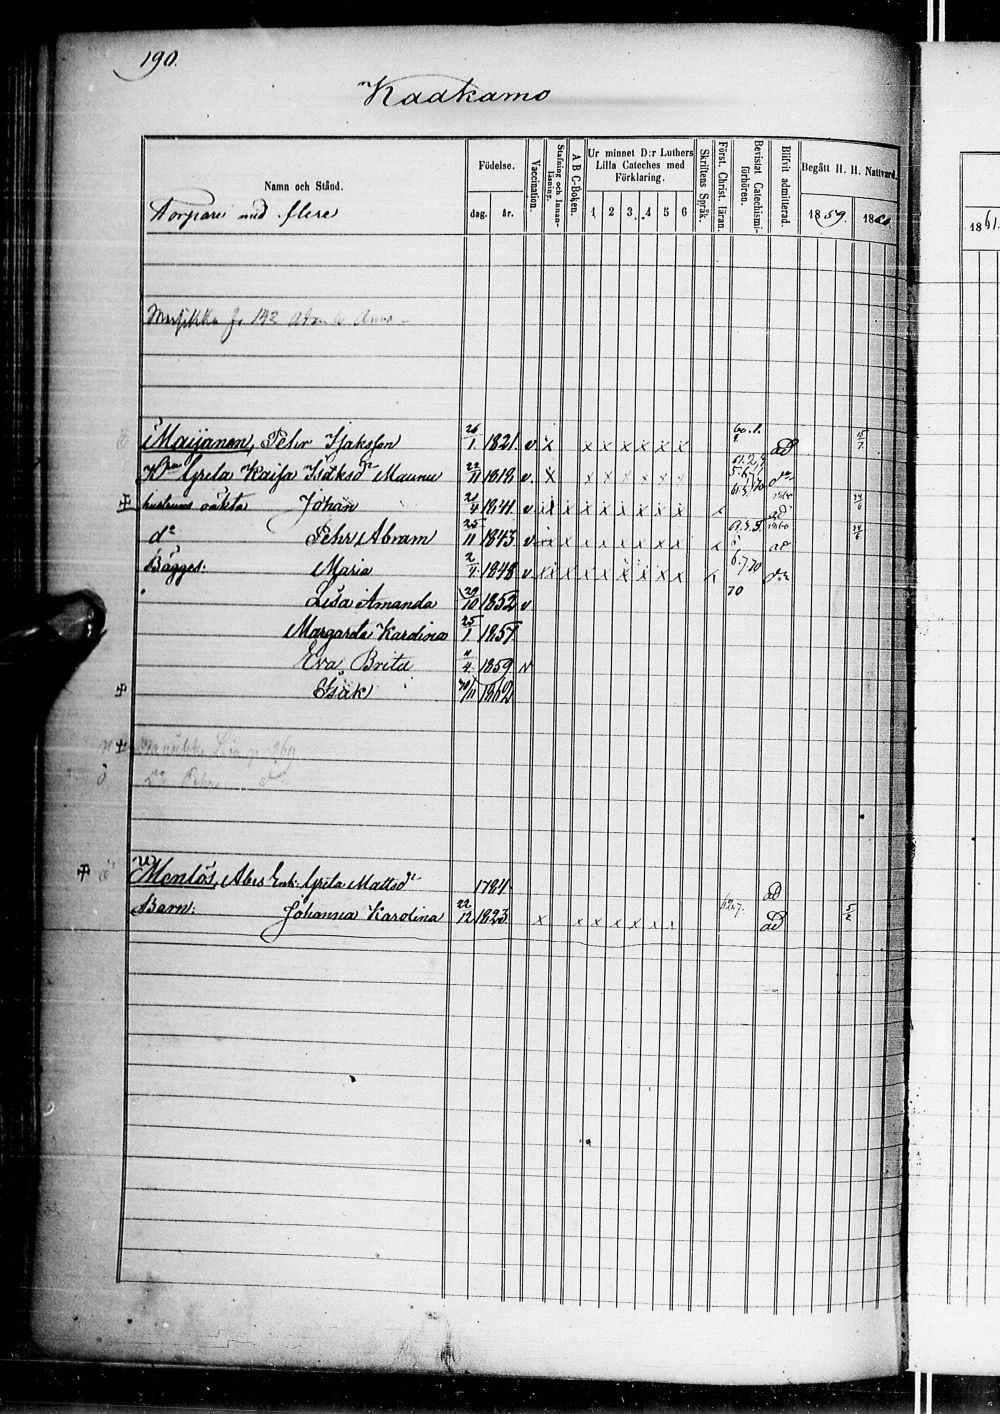 190.
Kaakamo
Namn och Stånd.
Torpare med flere
Födelse.
dag. år.
Vaccination.
Stafning och Innanläsning.
A B C-Boken.
Ur minnet D:r Luthers Lilla Cateches med Förklaring.
1 2 3 4 5 6
Skriftens Språk.
Först. Christ. läran.
Bevistat Catechismiförhören.
Blifvit admitterad.
Begått H. H. Nattvard.
1859. 1860.
1861.
142
Maijanen, Pehr Isaksson 26/1 1821. v x x x x x x x 60.1. ad 15/7
Greta Kaisa Isaksdr 22/11 1818 v. x x x x x x x dr
hustruns oäkta Johan 21/4 1841 v x x x x x x x x ad 24/6
do Pehr Abram 25/11 1843 v x x x x x x x x ad 24/6
Bägges: Maria 2/4 1848 v x x x x x x x x 6.7.70
Lisa Amanda 29/10 1852 v 70
Margareta Karolina 25/1 1857
Eva Brita 11/4 1859 v
Isak 1862
Enk. Greta Mattsdr 1784 ad
Barn: Johanna Karolina 22/12 1823 x x x x x x x 62.7. ad 5/2